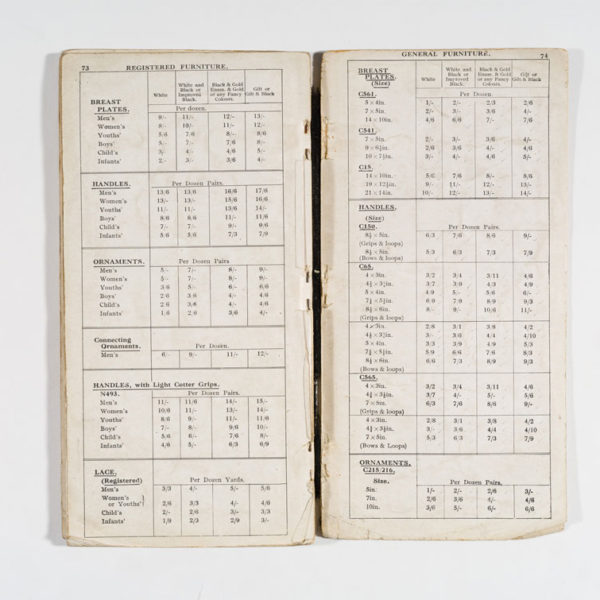 73 REGISTERED FURNITURE.
White White and Black or Improved Black. Black & Gold Enam. & Gold or any Fancy Colours. Gilt or Gilt & Black
BREAST PLATES. Per dozen.
Men's 9/- 11/- 12/- 13/-
Women's 8/- 10/- 11/- 12/-
Youths' 5/6 7/6 8/- 8/6
Boys' 5/- 7/- 7/6 8/-
Child's 3/- 4/- 4/6 5/-
Infants' 2/- 3/- 3/6 4/-
HANDLES. Per Dozen Pairs.
Men's 13/6 13/6 16/6 17/6
Women's 13/- 13/- 15/6 16/6
Youths' 11/- 11/- 13/6 14/-
Boys' 8/6 8/6 11/- 11/6
Child's 7/- 7/- 9/- 9/6
Infants' 5/6 5/6 7/3 7/9
ORNAMENTS. Per Dozen Pairs
Men's 5/- 7/- 8/- 9/-
Women's 5/- 7/- 8/- 9/-
Youths' 3/6 5/- 6/- 6/6
Boys' 2/6 3/6 4/- 4/6
Child's 2/6 3/6 4/- 4/6
Infants' 1/6 2/6 3/6 4/-
Connecting Ornaments. Per Dozen.
Men's 6/- 9/- 11/- 12/-
HANDLES, with Light Cotter Grips.
N493. Per Dozen Pairs.
Men's 11/- 11/6 14/- 15/-
Women's 10/6 11/- 13/- 14/-
Youths' 8/6 9/- 11/- 11/6
Boys' 7/- 8/- 9/6 10/-
Child's 5/6 6/- 7/6 8/-
Infants' 4/6 5/- 6/3 6/9
LACE.
(Registered) Per Dozen Yards.
Men's 3/3 4/- 5/- 5/6
Women's or Youths' 2/6 3/3 4/- 4/6
Child's 2/- 2/6 3/- 3/3
Infants' 1/9 2/3 2/9 3/-
GENERAL FURNITURE. 74
BREAST PLATES. (Size) White White and Black or Improved Black. Black & Gold Enam. & Gold or any Fancy Colours. Gilt or Gilt & Black
C561. Per Dozen
5 × 4in. 1/- 2/- 2/3 2/6
7 × 5in. 2/- 3/- 3/6 4/-
14 × 10in. 4/6 6/6 7/- 7/6
C541.
7 × 5in. 2/- 3/- 3/6 4/-
9 × 6½in. 2/6 3/6 4/- 4/6
10 × 7½in. 3/- 4/- 4/6 5/-
C15.
14 × 10in. 5/6 7/6 8/- 8/6
19 × 12½in. 9/- 11/- 12/- 13/-
21 × 14in. 10/- 12/- 13/- 14/-
HANDLES.
(Size)
C150. Per Dozen Pairs.
8½ × 5in. 6/3 7/6 8/6 9/-
(Grips & loops)
8½ × 5in. 5/3 6/3 7/3 7/9
(Bows & loops)
C65.
4 × 3in. 3/2 3/4 3/11 4/6
3/7 3/9 4/3 4/9
5 × 4in. 4/9 5/- 5/6 6/-
6/9 7/9 8/9 9/3
8/- 9/- 10/6 11/-
(Grips & loops)
4 × 3in. 2/8 3/1 3/8 4/2
3/- 3/6 4/4 4/10
5 × 4in. 3/3 3/9 4/9 5/3
5/9 6/6 7/6 8/3
6/6 7/3 8/9 9/3
(Bows & loops)
C565.
4 × 3in. 3/2 3/4 3/11 4/6
3/7 4/- 5/- 5/6
7 × 5in. 6/3 7/6 8/6 9/-
(Grips & loops)
4 × 3in. 2/8 3/1 3/8 4/2
3/- 3/6 4/4 4/10
7 × 5in. 5/3 6/3 7/3 7/9
(Bows & Loops)
ORNAMENTS.
C215/216.
Size. Per Dozen Pairs.
5in. 1/- 2/- 2/6 3/-
7in. 2/6 3/6 4/- 4/6
10in. 3/6 5/- 6/- 6/6